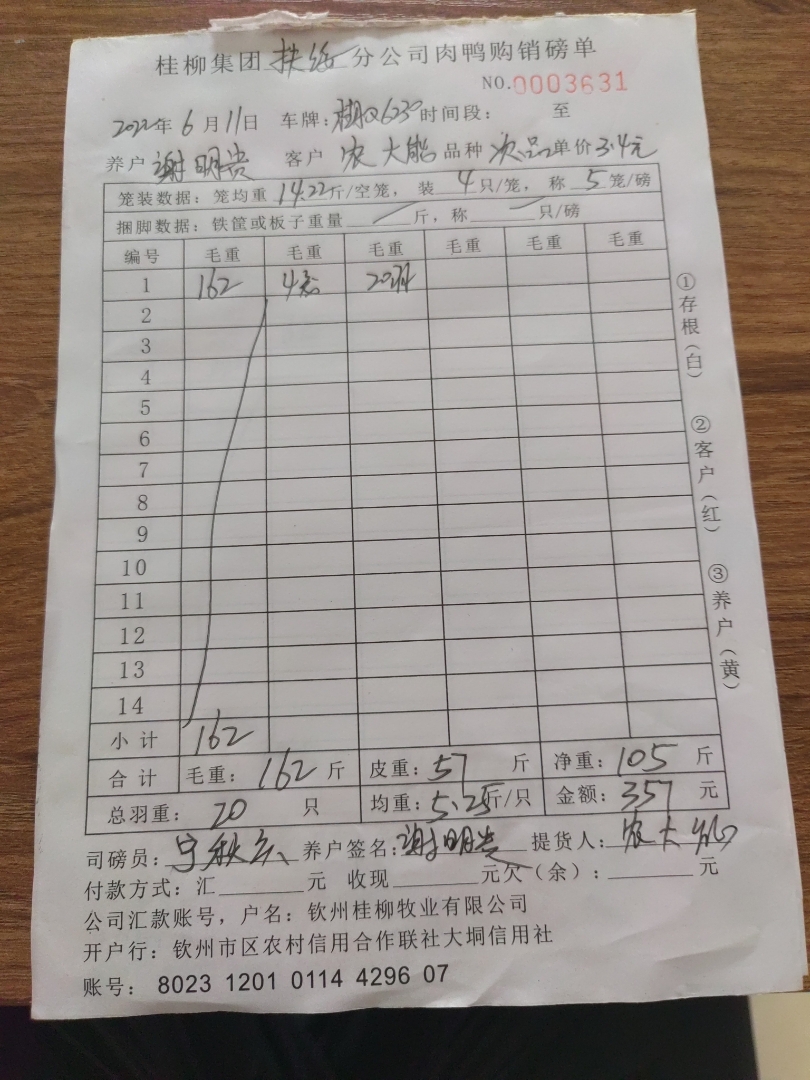 桂柳集团扶绥分公司肉鸭购销磅单
NO.0003631
2022年6月11日 车牌: 时间段: 至
养户谢明贵 客户农大能 品种次品 单价3.4元
笼装数据: 笼均重14.22斤/空笼, 装4只/笼, 称5笼/磅
捆脚数据: 铁筐或板子重量 / 斤, 称 / 只/磅
编号 毛重 毛重 毛重 毛重 毛重 毛重
1 162 4笼 20羽
2
3
4
5
6
7
8
9
10
11
12
13
14
小计 162
合计 毛重: 162斤 皮重: 57斤 净重: 105斤
总羽重: 20只 均重: 5.25斤/只 金额: 357元
司磅员: 养户签名: 谢明贵 提货人: 农大能
付款方式: 汇 元 收现 元 欠(余): 元
公司汇款账号, 户名: 钦州桂柳牧业有限公司
开户行: 钦州市区农村信用合作联社大垌信用社
账号: 8023 1201 0114 4296 07
①存根(白)
②客户(红)
③养户(黄)